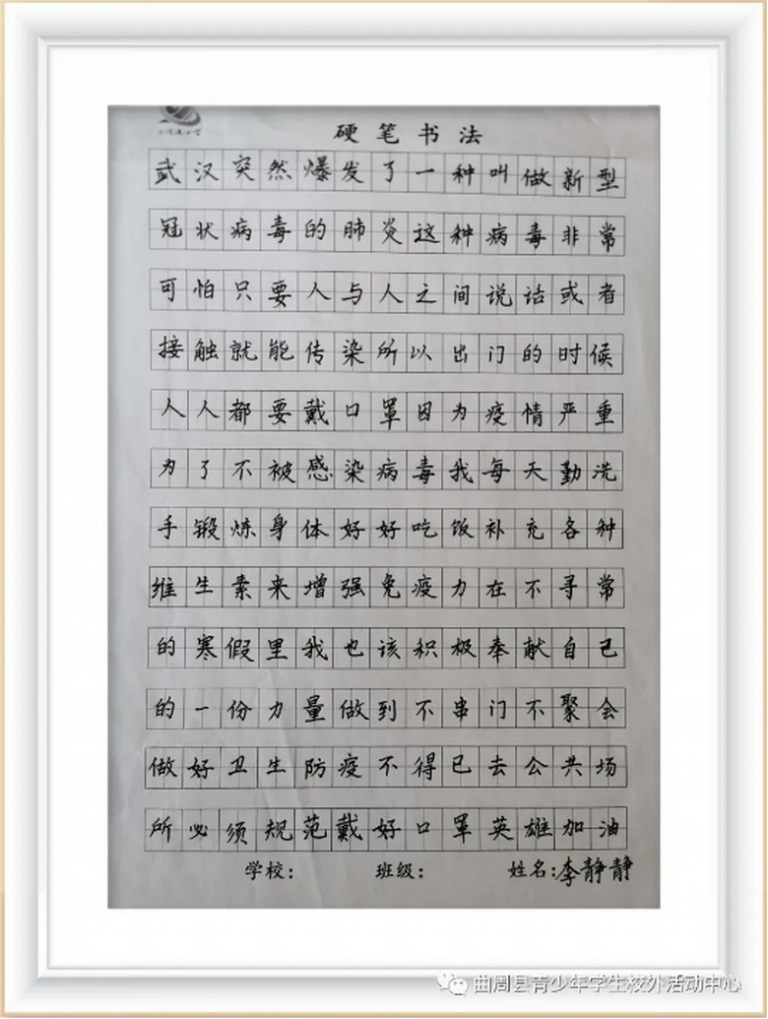 硬笔书法
武汉突然爆发了一种叫做新型
冠状病毒的肺炎这种病毒非常
可怕只要人与人之间说话或者
接触就能传染所以出门的时候
人人都要戴口罩因为疫情严重
为了不被感染病毒我每天勤洗
手锻炼身体好好吃饭补充各种
维生素来增强免疫力在不寻常
的寒假里我也该积极奉献自己
的一份力量做到不串门不聚会
做好卫生防疫不得已去公共场
所必须规范戴好口罩英雄加油
学校: 班级: 姓名:李静静
曲周县青少年学生校外活动中心